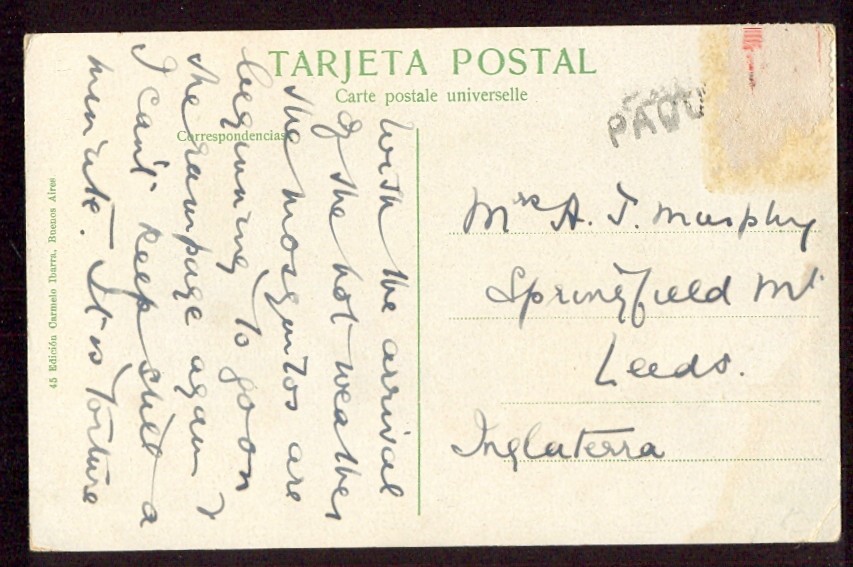 TARJETA POSTAL
Carte postale universelle
Correspondencias
With the arrival
of the hot weather
the mosquitos are
beginning to go on
the rampage again &
I can't keep still a
minute. It is torture
PAQU
Mrs A. T. Murphy
Springfield Mt
Leeds.
Inglaterra
45 Edición Carmelo Ibarra, Buenos Aires